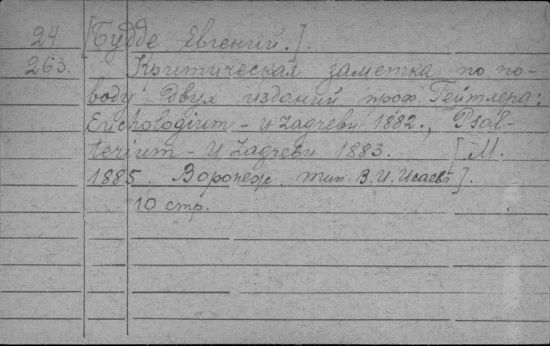 24 [Будде Евгений.].
263. Критическая заметка по по-
воду двух изданий проф. Гейтлера:
Euchologium - u Zagrebu 1882., Psal-
terium - u Zagrebu 1883. [М.
1885. Воронеж. тип. В. И. Исаева].
10 стр.